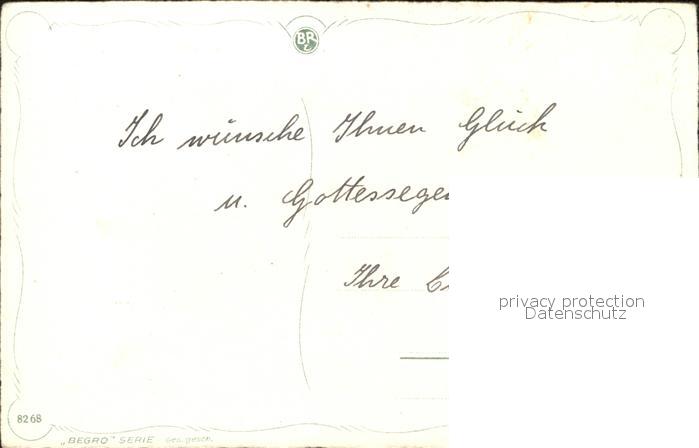 BR
Ich wünsche Ihnen Glück
u. Gottessegen
Ihre
privacy protection
Datenschutz
8268
„BEGRO" SERIE Ges. gesch.